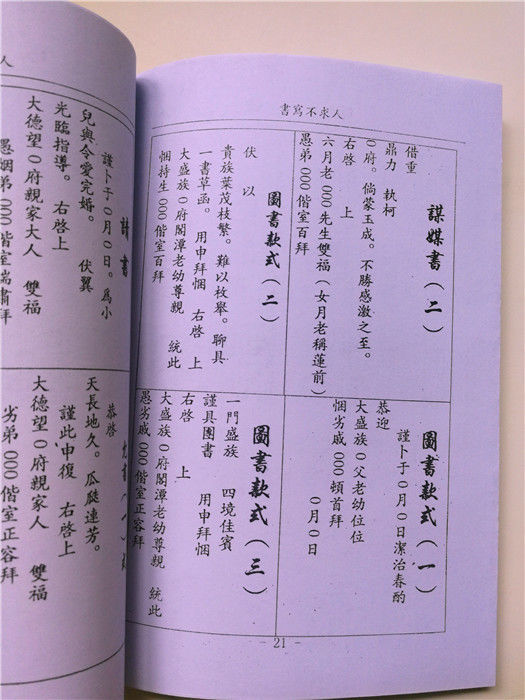 書寫不求人
謀媒書(二)
借重
鼎力 執柯
0府。倘蒙玉成。不勝感激之至。
右啓 上
六月老 000先生雙福(女月老稱蓮前)
愚弟 000偕室百拜
圖書款式(二)
伏以
貴族葉茂枝繁。難以枚舉。聊具
一書草函。 用申拜悃 右啓 上
大盛族0府閤潭老幼尊親 統此
悃持生 000偕室百拜
圖書款式(一)
謹卜于0月0日潔治春酌
恭迎
大盛族0父老幼位位
悃劣戚 000頓首拜
0月0日
圖書款式(三)
一門盛族 四境佳賓
謹具圖書 用申拜悃
右啓 上
大盛族0府閤潭老幼尊親 統此
愚劣戚 000偕室正容拜
- 21 -
人
請書
謹卜于0月0日。爲小
兒與令愛完婚。 伏翼
光臨指導。 右啓上
大德望0府親家大人 雙福
愚姻弟 000偕室端肅拜
允書(一)
恭啓
天長地久。瓜瓞連芳。
謹此申復 右啓上
大德望0府親家人 雙福
劣弟 000偕室正容拜